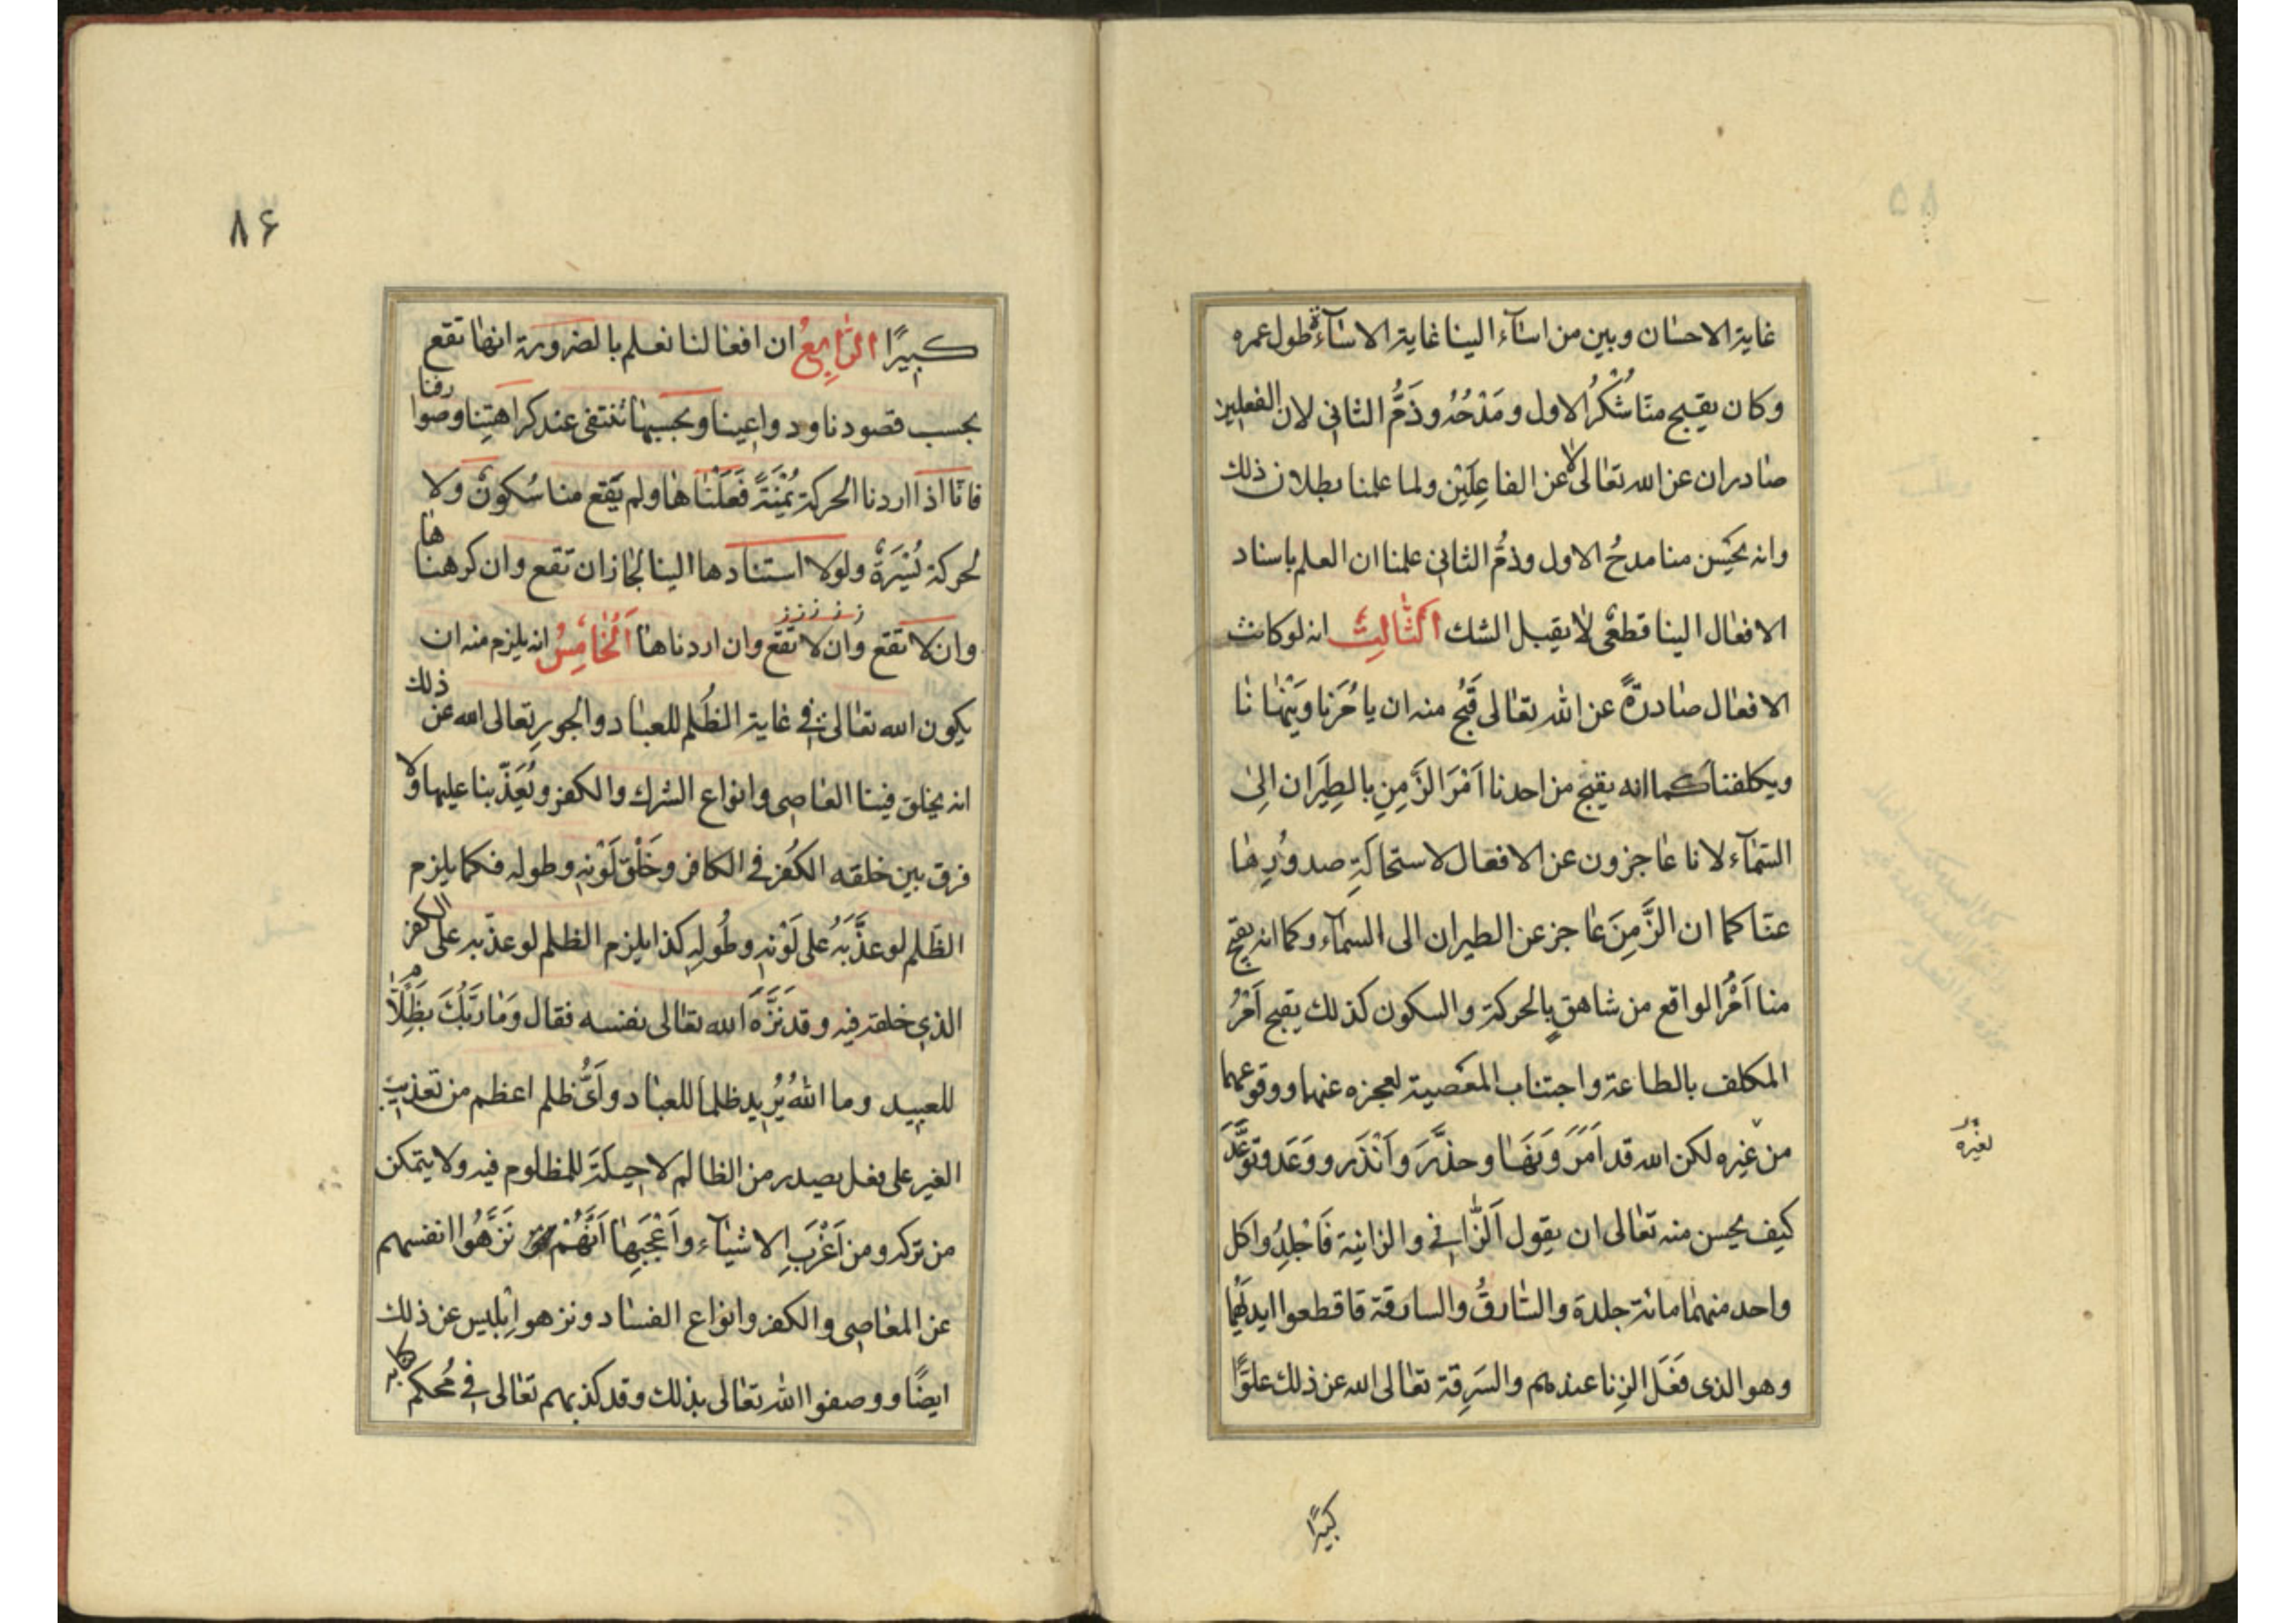 غاية الاحسان وبين من اسآء الينا غاية الاسآءة طول عمره
وكان يقبح منّا شُكْرُ الاول ومَدْحُهُ وذَمُّ الثاني لان الفعلين
صادران عن الله تعالى لا عن الفاعِلَيْن ولما علمنا بطلان ذلك
وانه يحْسن منا مدحُ الاول وذمُّ الثاني علمنا ان العلم باسناد
الافعال الينا قطعىٌ لا يقبل الشك اَلثَّالِثُ انه لو كانت
الافعال صادرةً عن الله تعالى قَبُح منه ان يأمُرَنا ويَنْهانا
ويكلفنا كما انه يقبح من احدنا اَمْرَ الزَّمِنِ بالطِيَران الى
السّمآء لانا عاجزون عن الافعال لاستحالَةِ صدورِها
عنّا كما ان الزَّمِنَ عاجز عن الطيران الى السمآء وكما انه يقبح
منا اَمْرُ الواقع من شاهقٍ بالحركة والسكون كذلك يقبح اَمْرُ
المكلف بالطاعة واجتناب المعْصية لعجزه عنهما ووقوعهما
من غيره لكن الله قد اَمَرَ ونَهَا وحذَّرَ واَنْذَر ووَعَد وتوَعَّدَ
لغيره
كيف يحسن منه تعالى ان يقول اَلزّاني والزانية فَاجْلِدُوا كل
واحد منهما مائة جلدة والسّارقُ والسارقة فاقطعوا ايديَهُما
وهو الذى فَعَلَ الزِنا عندهم والسَرِقة تعالى الله عن ذلك علوًّا
كبيرًا
۸۶
كبيرًا الرّابِعُ ان افعالنا نعلم بالضرورة انها تقع
بحسب قصودنا ودواعينا وبحسبها تنتفى عند كراهتِنا وصوارفنا
فانّا اذا اردنا الحركة يُمْنَةً فَعَلْناها ولم يَقع منا سُكونٌ ولا
لحركة يُسْرَةً ولولا استنادها الينا لجازان تقع وان كرهناها
وان لا تقع وان لا تقع وان اردناها اَلْخامِسُ انه يلزم منه ان
يكون الله تعالى فى غاية الظُلم للعباد والجورِ تعالى الله عن ذلك
انه يخلق فينا المعاصى وانواع الشرك والكفر ويُعَذّبنا عليها ولا
فرق بين خلقه الكُفرَ في الكافر وخَلْقِ لَوْنِهِ وطوله فكما يلزم
الظلم لو عذَّبَهُ على لَوْنِهِ وطُولِهِ كذا يلزم الظلم لو عذّبه على الكفر
الذي خلقه فيه وقد نَزَّهَ الله تعالى نفسه فقال وَما رَبُّكَ بِظَلّامٍ
للعبيد وما اللهُ يُرِيد ظلما للعباد واَىُّ ظلم اعظم من تعذيب
الغير على فعل يصدر من الظالم لا حيلَةَ للمظلوم فيه ولا يتمكن
من تركه ومن اَغْرَبِ الاشيآء واَعْجَبِها اَنَّهُمْ نَزَّهُوا انفسهم
عن المعاصى والكفر وانواع الفساد ونزهوا اِبْليس عن ذلك
ايضًا ووصفوا الله تعالى بذلك وقد كذبهم تعالى فى مُحكم كتابه